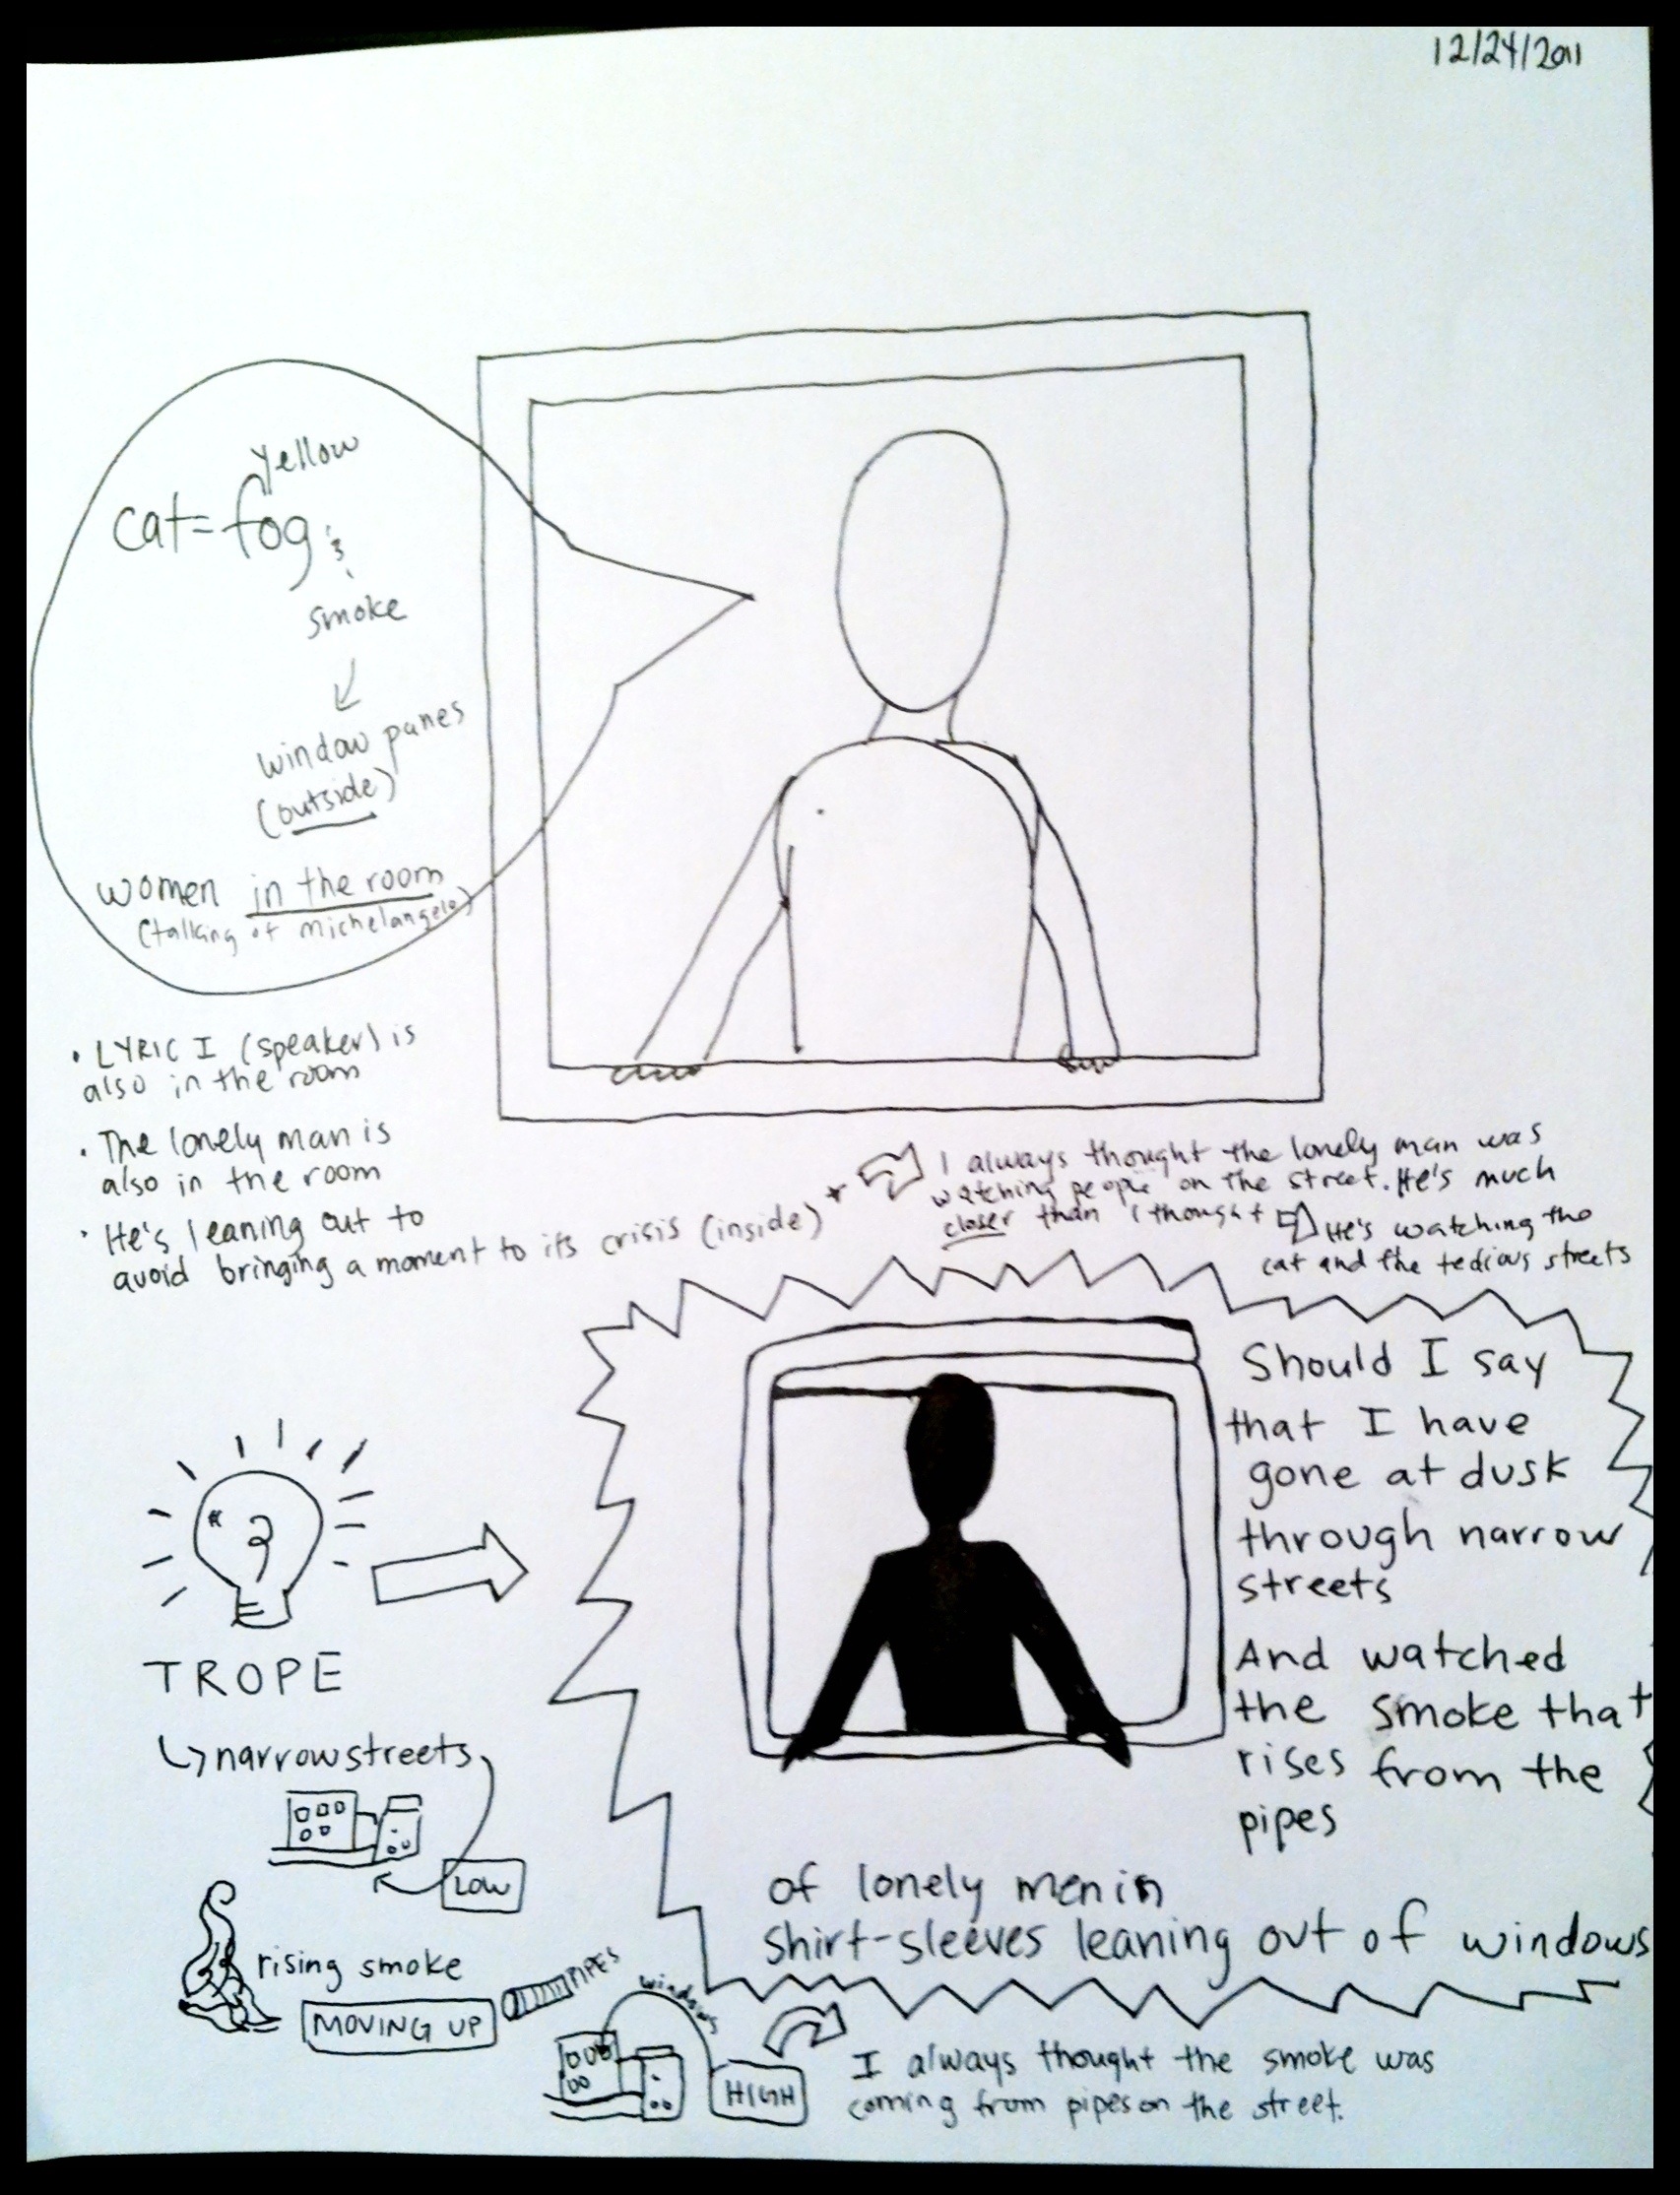 12/24/2011
Yellow
cat= fog &
smoke
window panes
(outside)
women in the room
(talking of michelangelo)
• LYRIC I (speaker) is
also in the room
• The lonely man is
also in the room
• He's leaning out to
avoid bringing a moment to its crisis (inside)
I always thought the lonely man was
watching people on the street. He's much
closer than I thought
He's watching the
cat and the tedious streets
Should I say
that I have
gone at dusk
through narrow
streets
And watched
the smoke that
rises from the
pipes
of lonely men in
shirt-sleeves leaning out of windows
TROPE
narrow streets
LOW
rising smoke
MOVING UP
PIPES
windows
HIGH
I always thought the smoke was
coming from pipes on the street.